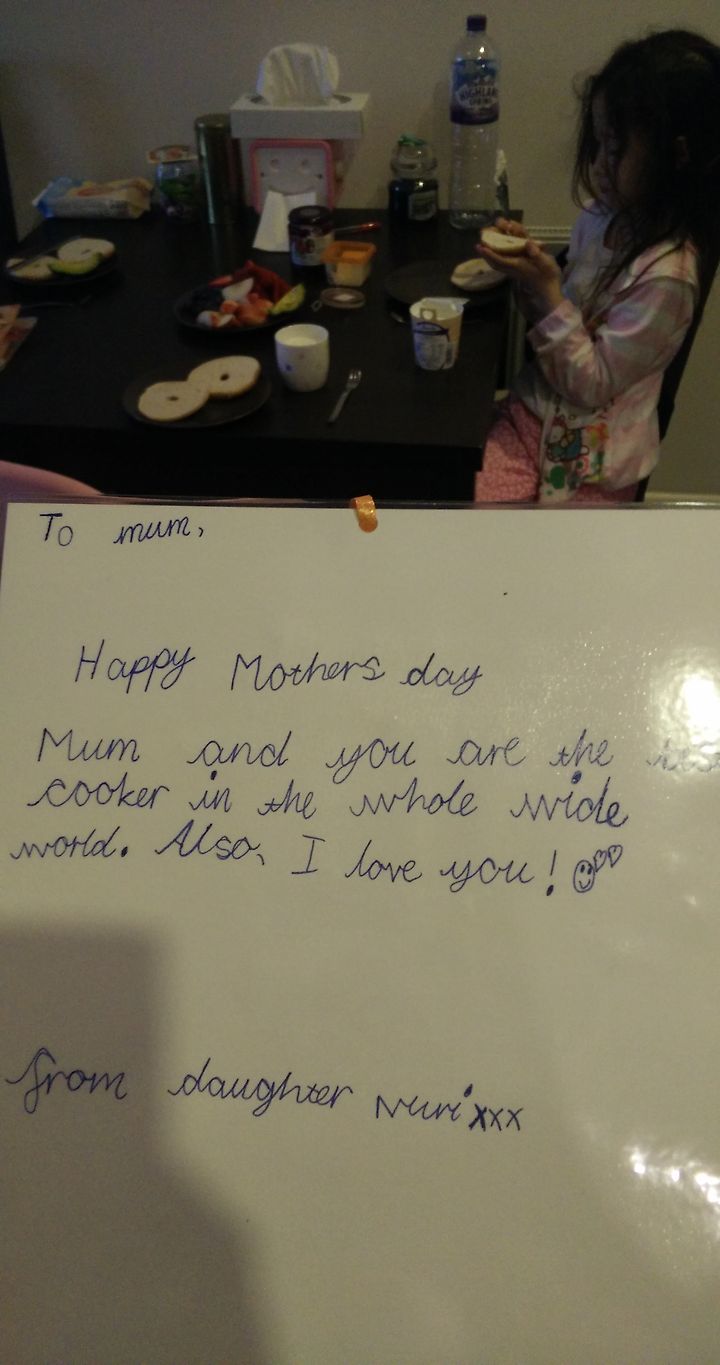 HIGHLAND
SPRING
To mum,
Happy Mothers day
Mum and you are the best
cooker in the whole wide
world. Also, I love you!
from daughter Nuri xxx